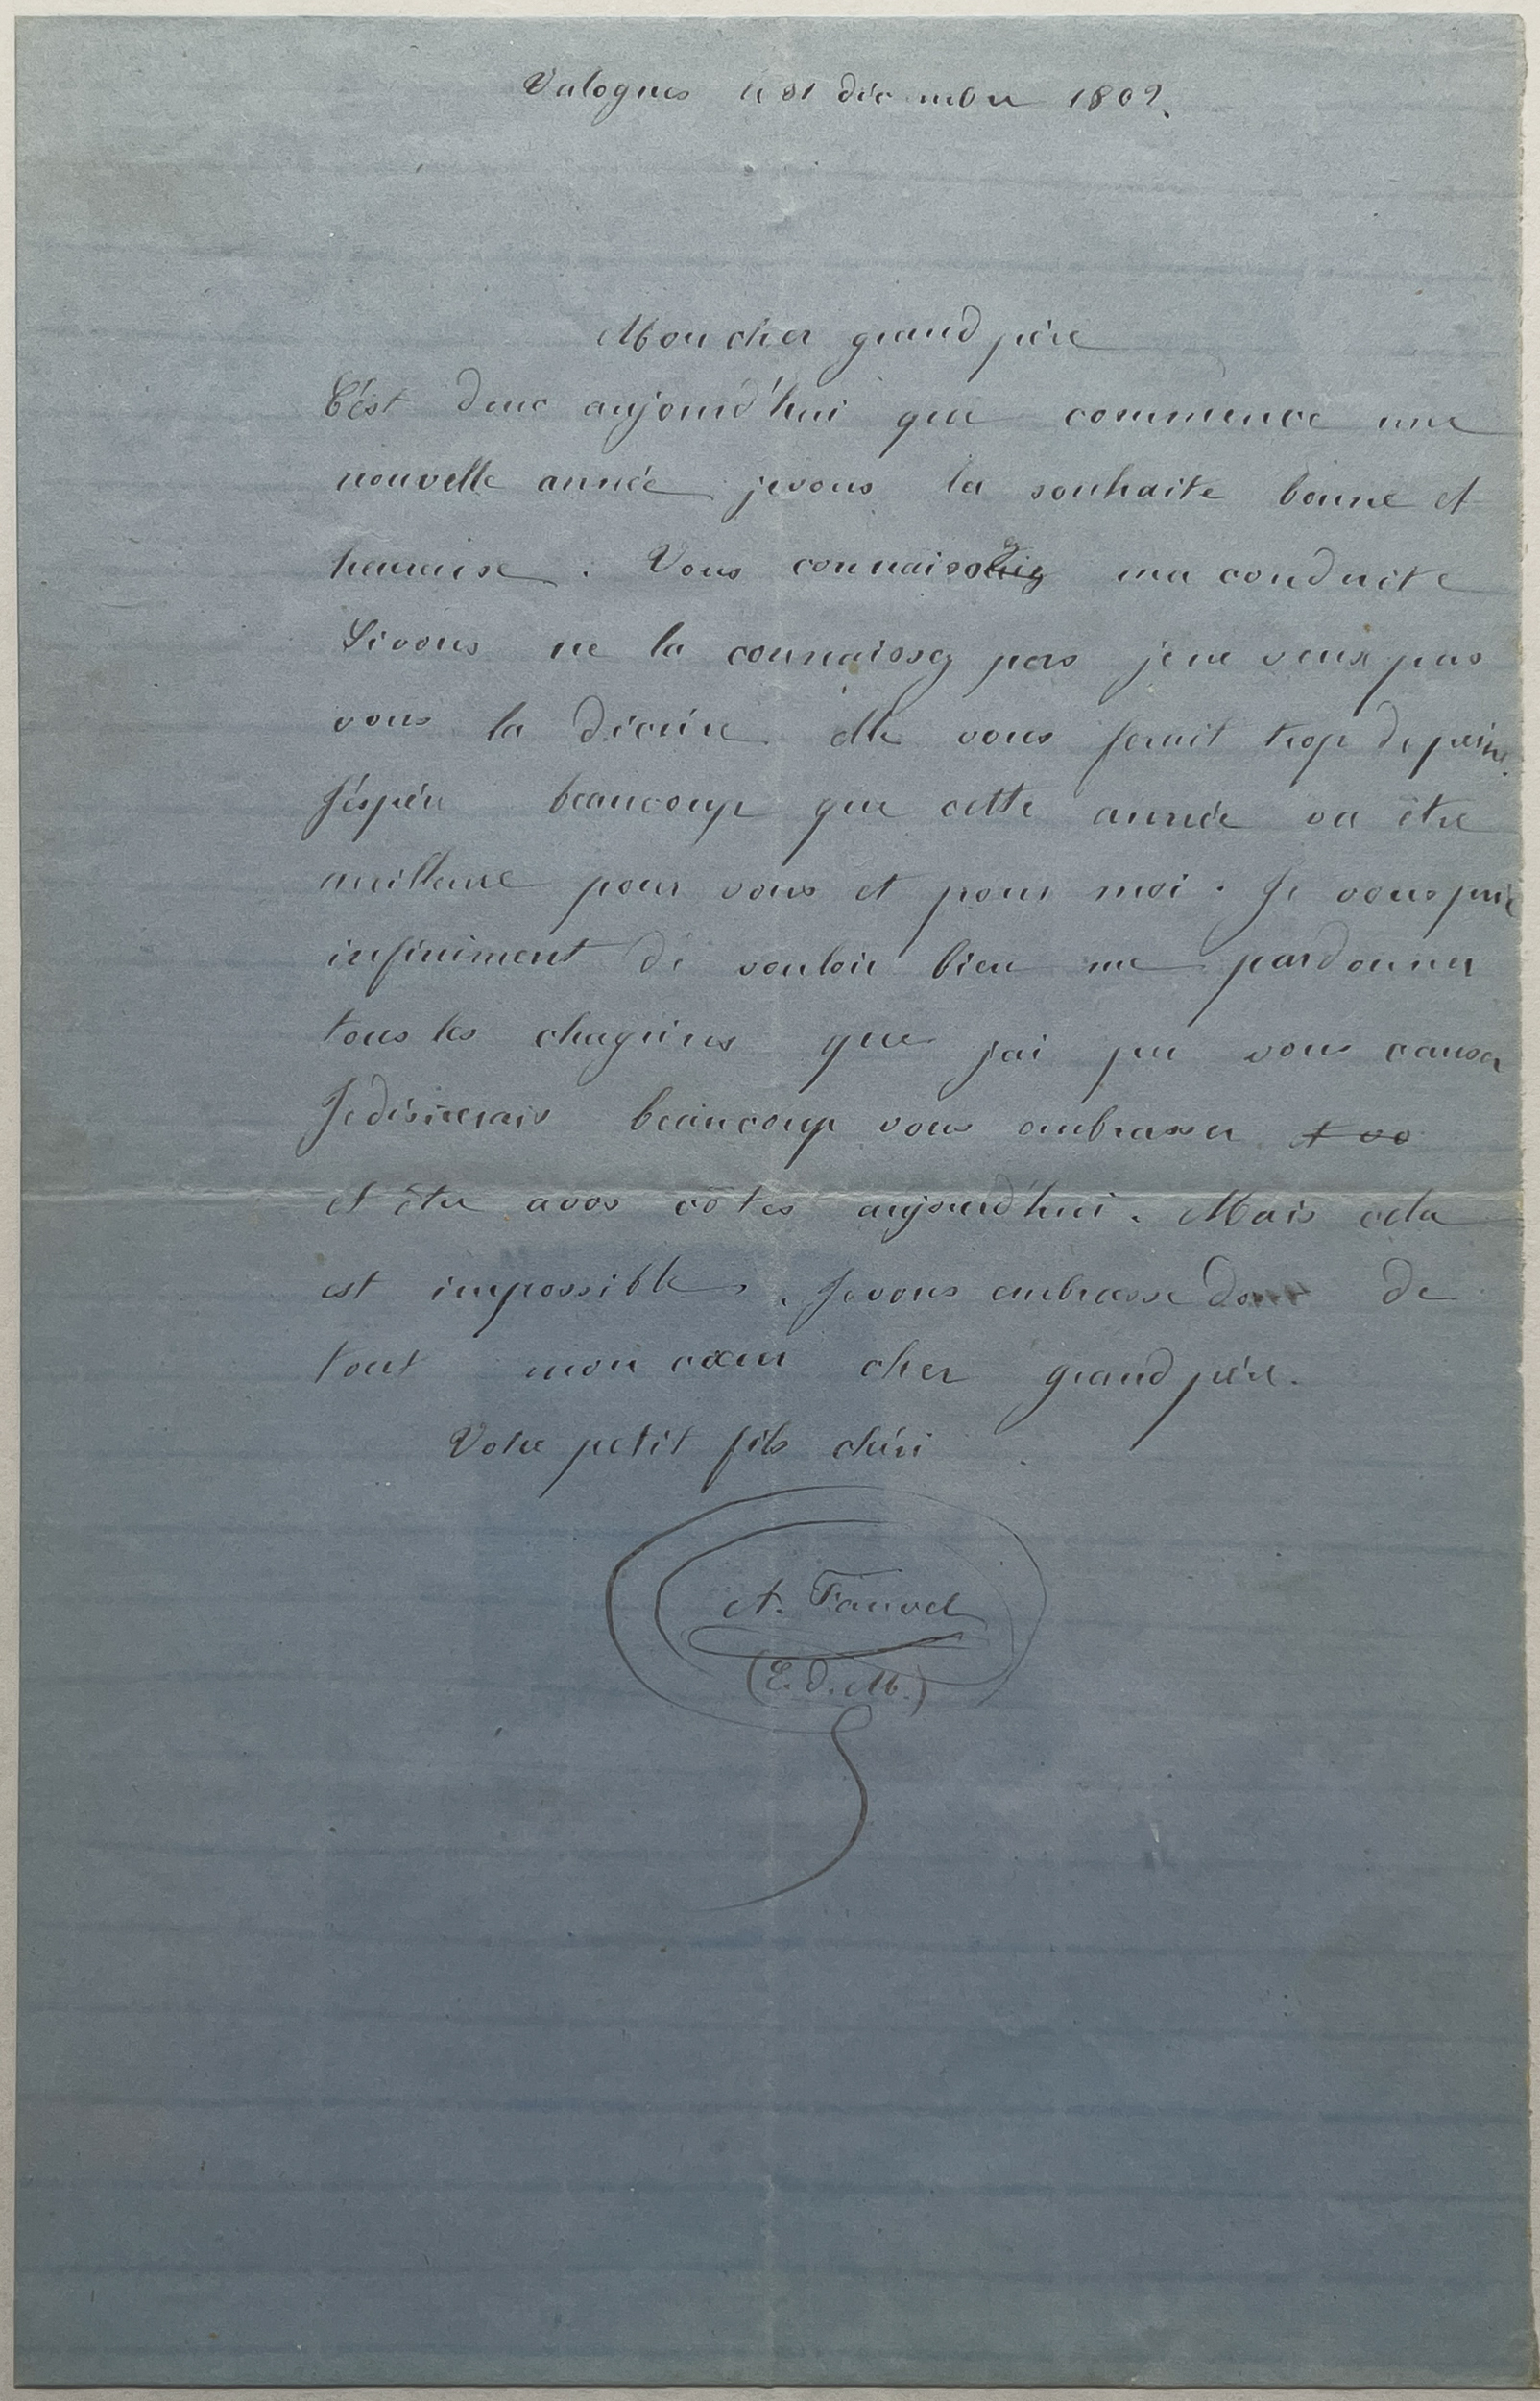 Valognes le 31 décembre 1869.
Mon cher grand père
C'ést donc aujourd'hui que commence une
nouvelle année je vous la souhaite bonne et
heureuse. Vous connaissez ma conduite
Si vous ne la connaissez pas je ne veux pas
vous la décrire elle vous ferait trop de peine.
J'éspère beaucoup que cette année va être
meilleure pour vous et pour moi. Je vous prie
infiniment de vouloir bien me pardonner
tous les chagrins que j'ai pu vous causer
Je désirerais beaucoup vous embrasser et vo
et être a vos côtes aujourd'hui. Mais cela
est impossible. Je vous embrasse donc de
tout mon cœur cher grand père.
Votre petit fils chéri
A. Fauvel
(E. d. M.)